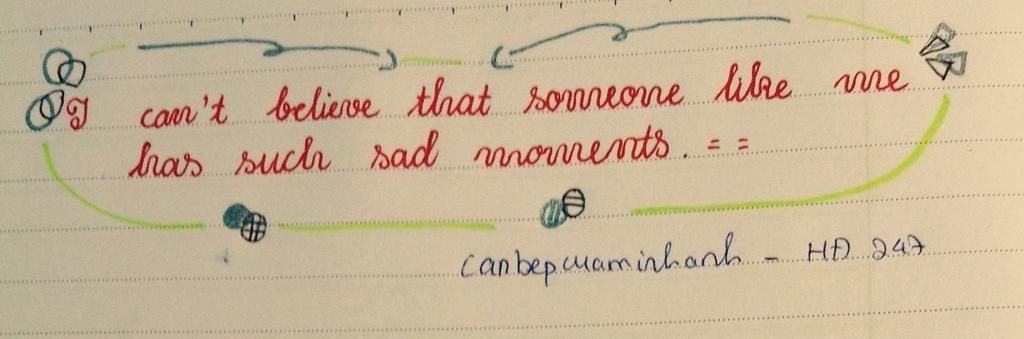 I can't believe that someone like me
has such sad moments. = =
canbepcuaminhanh - HĐ 247